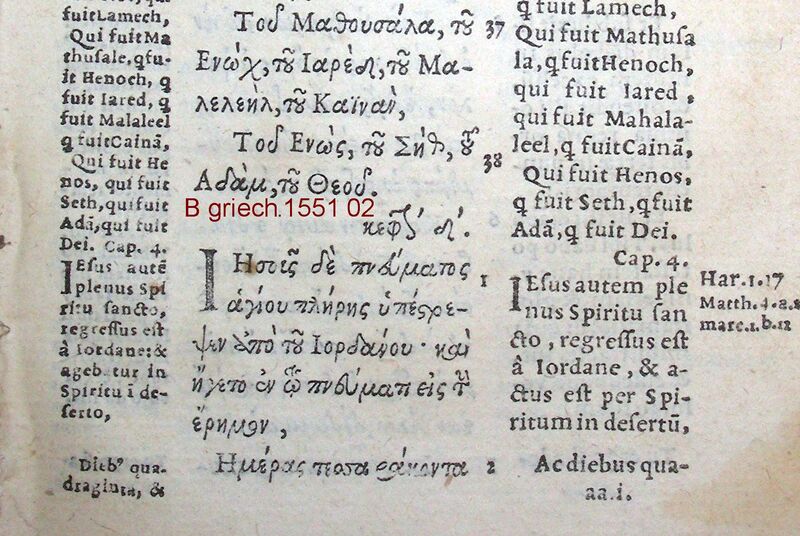 fuit Lamech,
Qui fuit Ma
thuſale, qfu-
it Henoch, q
fuit Iared, q
fuit Malaleel
q fuit Cainã,
Qui fuit He
nos, qui fuit
Seth, qui fuit
Adã, qui fuit
Dei. Cap. 4.
IEſus autē
plenus Spi
ritu ſancto,
regreſſus eſt
à Iordane: &
agebatur in
Spiritu ĩ de-
ſerto,
Dieb⁹ qua
draginta, &
Τοῦ Μαθουσάλα, τοῦ 37
Ενὼχ, τοῦ Ιαρὲδ, τοῦ Μα-
λελεὴλ, τοῦ Καϊνὰν,
Τοῦ Ενὼς, τοῦ Σὴθ, τοῦ 38
Αδὰμ, τοῦ Θεοῦ.
B griech.1551 02
κεφ. δ.
ΙΗσοῦς δὲ πνεύματος 1
ἁγίου πλήρης ὑπέστρε-
ψεν ἀπὸ τοῦ Ιορδάνου· καὶ
ἤγετο ἐν τῷ πνεύματι εἰς τὴν
ἔρημον,
Ημέρας τεσσαράκοντα 2
q fuit Lamech,
Qui fuit Mathuſa
la, qfuit Henoch,
qui fuit Iared,
qui fuit Mahala-
leel, q fuit Cainã,
Qui fuit Henos,
q fuit Seth, qfuit
Adã, q fuit Dei.
Cap. 4.
IEſus autem ple
nus Spiritu ſan
cto, regreſſus eſt
à Iordane, & a-
ctus eſt per Spi-
ritum in deſertũ,
Ac diebus qua-
aa.i.
Har.1.17
Matth.4.a.1
marc.1.b.12